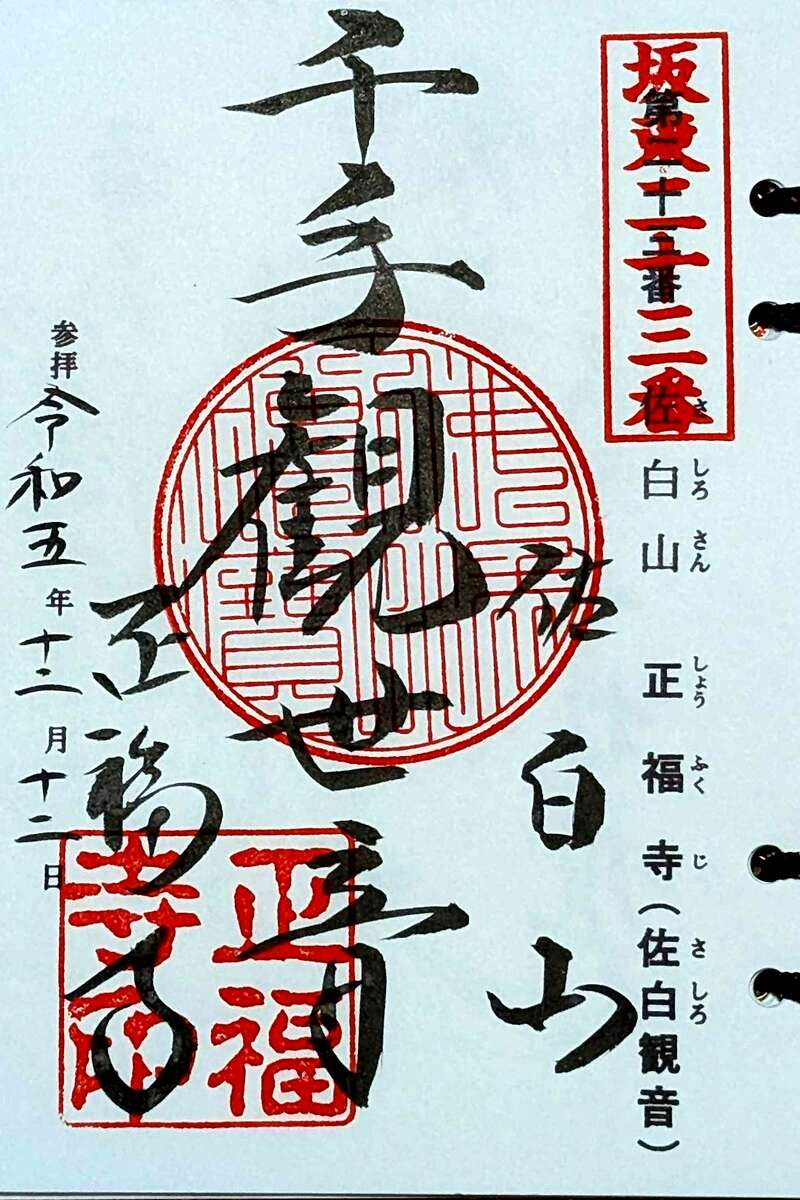 坂東二十三番
第二十三番 佐白山 正福寺(佐白観音)
さ しろ さん しょう ふく じ さ しろ
佐白山
千手觀世音
正福寺
正福寺印
参拝 令和五年十二月十二日